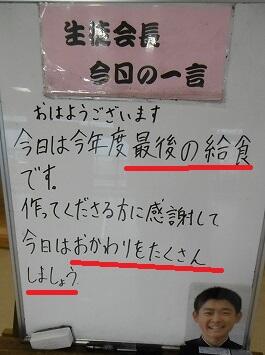 生徒会長
今日の一言
おはようございます
今日は今年度最後の給食
です。
作ってくださる方に感謝して
今日はおかわりをたくさん
しましょう